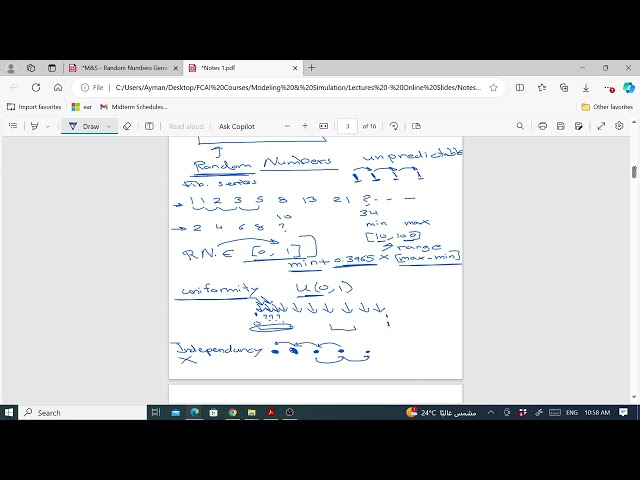 *M&S - Random Numbers Gene
*Notes 1.pdf
File
C:/Users/Ayman/Desktop/FCAI%20Courses/Modeling%20&%20Simulation/Lectures%20-%20Online%20Slides/Notes...
Import favorites
ear
Midterm Schedules...
Other favorites
Draw
Read aloud
Ask Copilot
3 of 16
Random Numbers
unpredictable
1 1 1 1
Fib. series
1 1 2 3 5 8 13 21 ? - - -
34
2 4 6 8 ?
10
min max
[10, 100]
R.N. ∈ [0, 1]
range
min + 0.3965 × [max-min]
uniformity
U(0,1)
? ? ?
0
1
Independancy
X
Search
24°C
مشمس غالبًا
ENG
10:58 AM